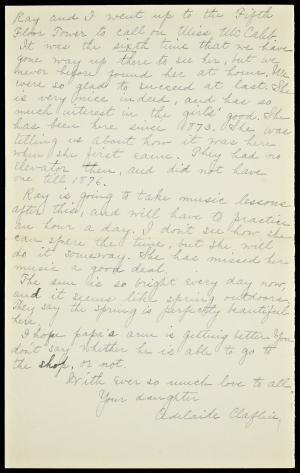 Ray and I went up to the Fifth
Floor Tower to call on Miss McCaleb.
It was the sixth time that we have
gone way up there to see her, but we
never before found her at home. We
were so glad to succeed at last. She
is very nice indeed, and has so
much interest in the girls' good. She
has been here since 1873. She was
telling us about how it was here
when she first came. They had no
elevator then, and did not have
one till 1876.
Ray is going to take music lessons
after this, and will have to practice
an hour a day. I don't see how she
can spere the time, but she will
do it someway. She has missed her
music a good deal.
The sun is so bright every day now,
and it seems like spring outdoors.
They say the spring is perfectly beautiful
here.
I hope papa's arm is getting better. You
don't say whether he is able to go to
the shop, or not.
With ever so much love to all,
Your daughter
Adelaide Claflin,